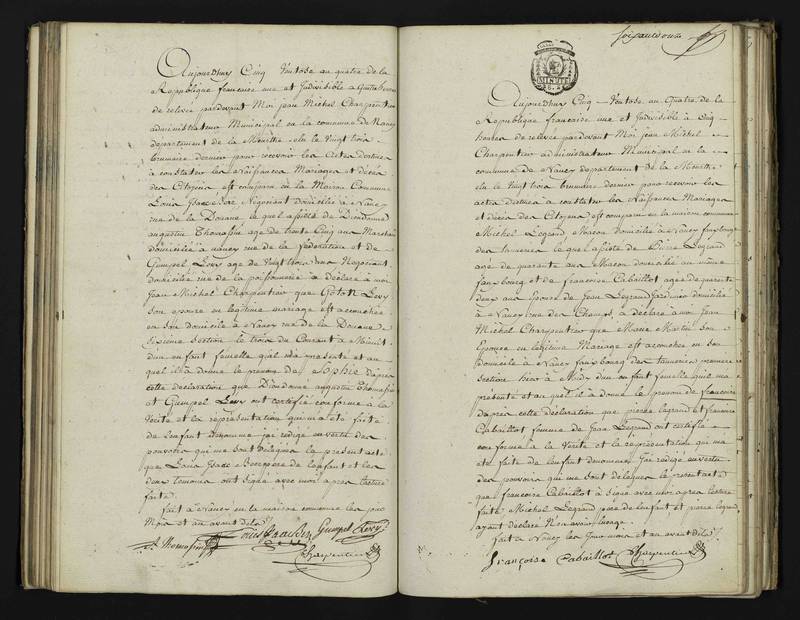 Aujourdhuy Cinq Ventose an quatre de la
Republique francaise une et Indivisible a quatre heures
de relevée pardevant Moi jean Michel Charpentier
administrateur Municipal en la commune de Nancy
departement de la Meurthe elu le vingt trois
brumaire dernier pour recevoir les actes destinés
à constater les Naissances Mariages et décès
des Citoyens est comparu en la Maison Commune
Louis Isaac Beer Négociant domicilié à Nancy
rue de la Douane lequel assisté de Dieudonné
augustin Thomassin agé de trente Cinq ans Marchand
domicilié à nancy rue de la fédération et de
Gumpel Levy agé de vingt trois ans Negociant
domicilié rue de la poissonnerie a déclaré à moi
Jean Michel Charpentier que Goton Levy
son epouse en legitime mariage est accouchée
en son domicile à Nancy rue de la Douane
Sixieme Section le trois du Courant à Minuit
dun enfant femelle quil ma presenté et au
quel il a donné le prenom de Sophie dapres
cette déclaration que Dieudonné augustin Thomassin
et Gumpel Levy ont certifié conforme à la
Verité et la représentation qui ma été faite
de lenfant denommé jai rédigé en vertu des
pouvoirs qui me sont délégués le present acte
que Louis Isaac Beer pere de lenfant et les
deux temoins ont signé avec moi apres lecture
faite
fait à Nancy en la maison commune les jour
Mois et an avant dits
A Thomassin Louis Isaac Beer Gumpel Levy
Charpentier
soixante douze
MINUTE
Aujourdhuy Cinq Ventose an Quatre de la
Republique francaise une et Indivisible à Cinq
heures de relevée pardevant Moi jean Michel
Charpentier administrateur Municipal en la
commune de Nancy departement de la Meurthe
elu le vingt trois brumaire dernier pour recevoir les
actes destinés à constater les Naissances Mariages
et décès des Citoyens est comparu en la maison commune
Michel Legrand Macon domicilié à Nancy fauxbourg
des tanneries lequel assisté de Pierre Legrand
agé de quarante ans Macon domicilié au même
fauxbourg et de Francoise Cabaillot agée de quarante
deux ans Epouse de Jean Legrand Jardinier domicilié
à Nancy rue des Champs, a déclaré à moi Jean
Michel Charpentier que Marie Martin Son
Epouse en légitime Mariage est accouchée en Son
domicile à Nancy fauxbourg des tanneries premiere
Section hier à Midy dun enfant femelle quil ma
présenté et au quel il a donné le prenom de francoise
dapres cette déclaration que pierre legrand et francoise
Cabaillot femme de Jean Legrand ont certifié
conforme à la Verité et la représentation qui ma
été faite de lenfant denommé Jai rédigé en vertu
des pouvoirs qui me sont délégués le present acte
que francoise Cabaillot a Signé avec moi apres lecture
faite Michel Legrand pere de lenfant, et pierre legrand
ayant déclaré N'en avoir lusage
fait à Nancy les Jour mois et an avant dits
Françoise Cabaillot Charpentier